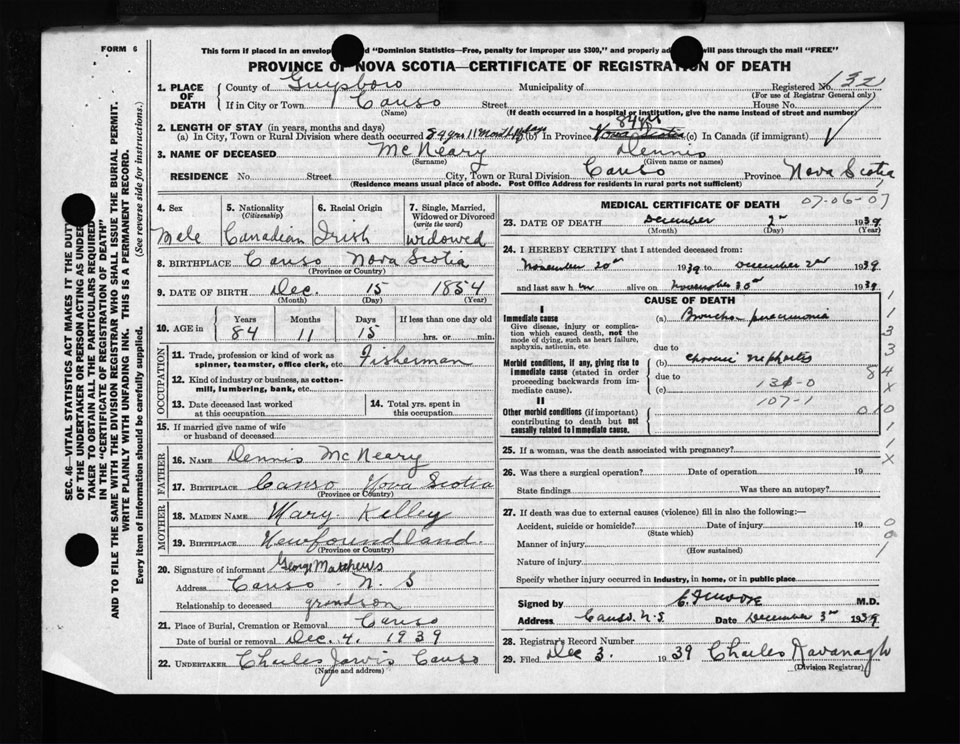 FORM 6
This form if placed in an envelop d "Dominion Statistics—Free, penalty for improper use $300," and properly ad will pass through the mail "FREE"
PROVINCE OF NOVA SCOTIA—CERTIFICATE OF REGISTRATION OF DEATH
1. PLACE OF DEATH
County of Guysboro Municipality of Registered No. 132
(For use of Registrar General only)
If in City or Town Canso Street House No.
(Name) (If death occurred in a hospital or institution, give the name instead of street and number)
2. LENGTH OF STAY (in years, months and days) 84 yrs
(a) In City, Town or Rural Division where death occurred 84 yrs 11 Months (b) In Province Nova Scotia (c) In Canada (if immigrant)
3. NAME OF DECEASED McNeary Dennis
(Surname) (Given name or names)
RESIDENCE No. Street City, Town or Rural Division Canso Province Nova Scotia
(Residence means usual place of abode. Post Office Address for residents in rural parts not sufficient)
SEC. 46—VITAL STATISTICS ACT MAKES IT THE DUTY
OF THE UNDERTAKER OR PERSON ACTING AS UNDER-
TAKER TO OBTAIN ALL THE PARTICULARS REQUIRED
IN THE "CERTIFICATE OF REGISTRATION OF DEATH"
AND TO FILE THE SAME WITH THE DIVISION REGISTRAR WHO SHALL ISSUE THE BURIAL PERMIT.
WRITE PLAINLY WITH UNFADING INK. THIS IS A PERMANENT RECORD.
Every item of information should be carefully supplied. (See reverse side for instructions.)
4. Sex
Male
5. Nationality
(Citizenship)
Canadian
6. Racial Origin
Irish
7. Single, Married,
Widowed or Divorced
(write the word)
widowed
8. BIRTHPLACE Canso Nova Scotia
(Province or Country)
9. DATE OF BIRTH Dec. 15 1854
(Month) (Day) (Year)
10. AGE in
Years Months Days If less than one day old
84 11 15 hrs. or min.
OCCUPATION
11. Trade, profession or kind of work as
spinner, teamster, office clerk, etc. Fisherman
12. Kind of industry or business, as cotton-
mill, lumbering, bank, etc.
13. Date deceased last worked
at this occupation
14. Total yrs. spent in
this occupation
15. If married give name of wife
or husband of deceased
FATHER
16. NAME Dennis McNeary
17. BIRTHPLACE Canso Nova Scotia
(Province or Country)
MOTHER
18. MAIDEN NAME Mary Kelley
19. BIRTHPLACE Newfoundland.
(Province or Country)
20. Signature of informant George Matthews
Address Canso - N. S
Relationship to deceased grandson
21. Place of Burial, Cremation or Removal Canso
Date of burial or removal Dec. 4. 1939
22. UNDERTAKER Charles Jarvis Canso
(Name and address)
MEDICAL CERTIFICATE OF DEATH 07-06-07
23. DATE OF DEATH December 2nd 1939
(Month) (Day) (Year)
24. I HEREBY CERTIFY that I attended deceased from:
November 20th 1939 to December 2nd 1939
and last saw him alive on November 30th 1939
CAUSE OF DEATH
I
Immediate cause
Give disease, injury or complica-
tion which caused death, not the
mode of dying, such as heart failure,
asphyxia, asthenia, etc.
(a) Broncho pneumonia
due to
Morbid conditions, if any, giving rise to
immediate cause (stated in order
proceeding backwards from im-
mediate cause).
(b) chronic nephritis
due to
(c) 131-0
107-1
II
Other morbid conditions (if important)
contributing to death but not
causally related to immediate cause.
1
1
3
3
84
X
010
1
1
X
25. If a woman, was the death associated with pregnancy?
26. Was there a surgical operation? Date of operation 19
State findings Was there an autopsy?
27. If death was due to external causes (violence) fill in also the following:—
Accident, suicide or homicide? Date of injury 19
(State which)
Manner of injury
(How sustained)
Nature of injury
Specify whether injury occurred in industry, in home, or in public place
0
0
1
Signed by M.D.
Address Canso N.S. Date December 3rd 1939
28. Registrar's Record Number
29. Filed Dec 3. 1939 Charles Kavanagh
(Division Registrar)